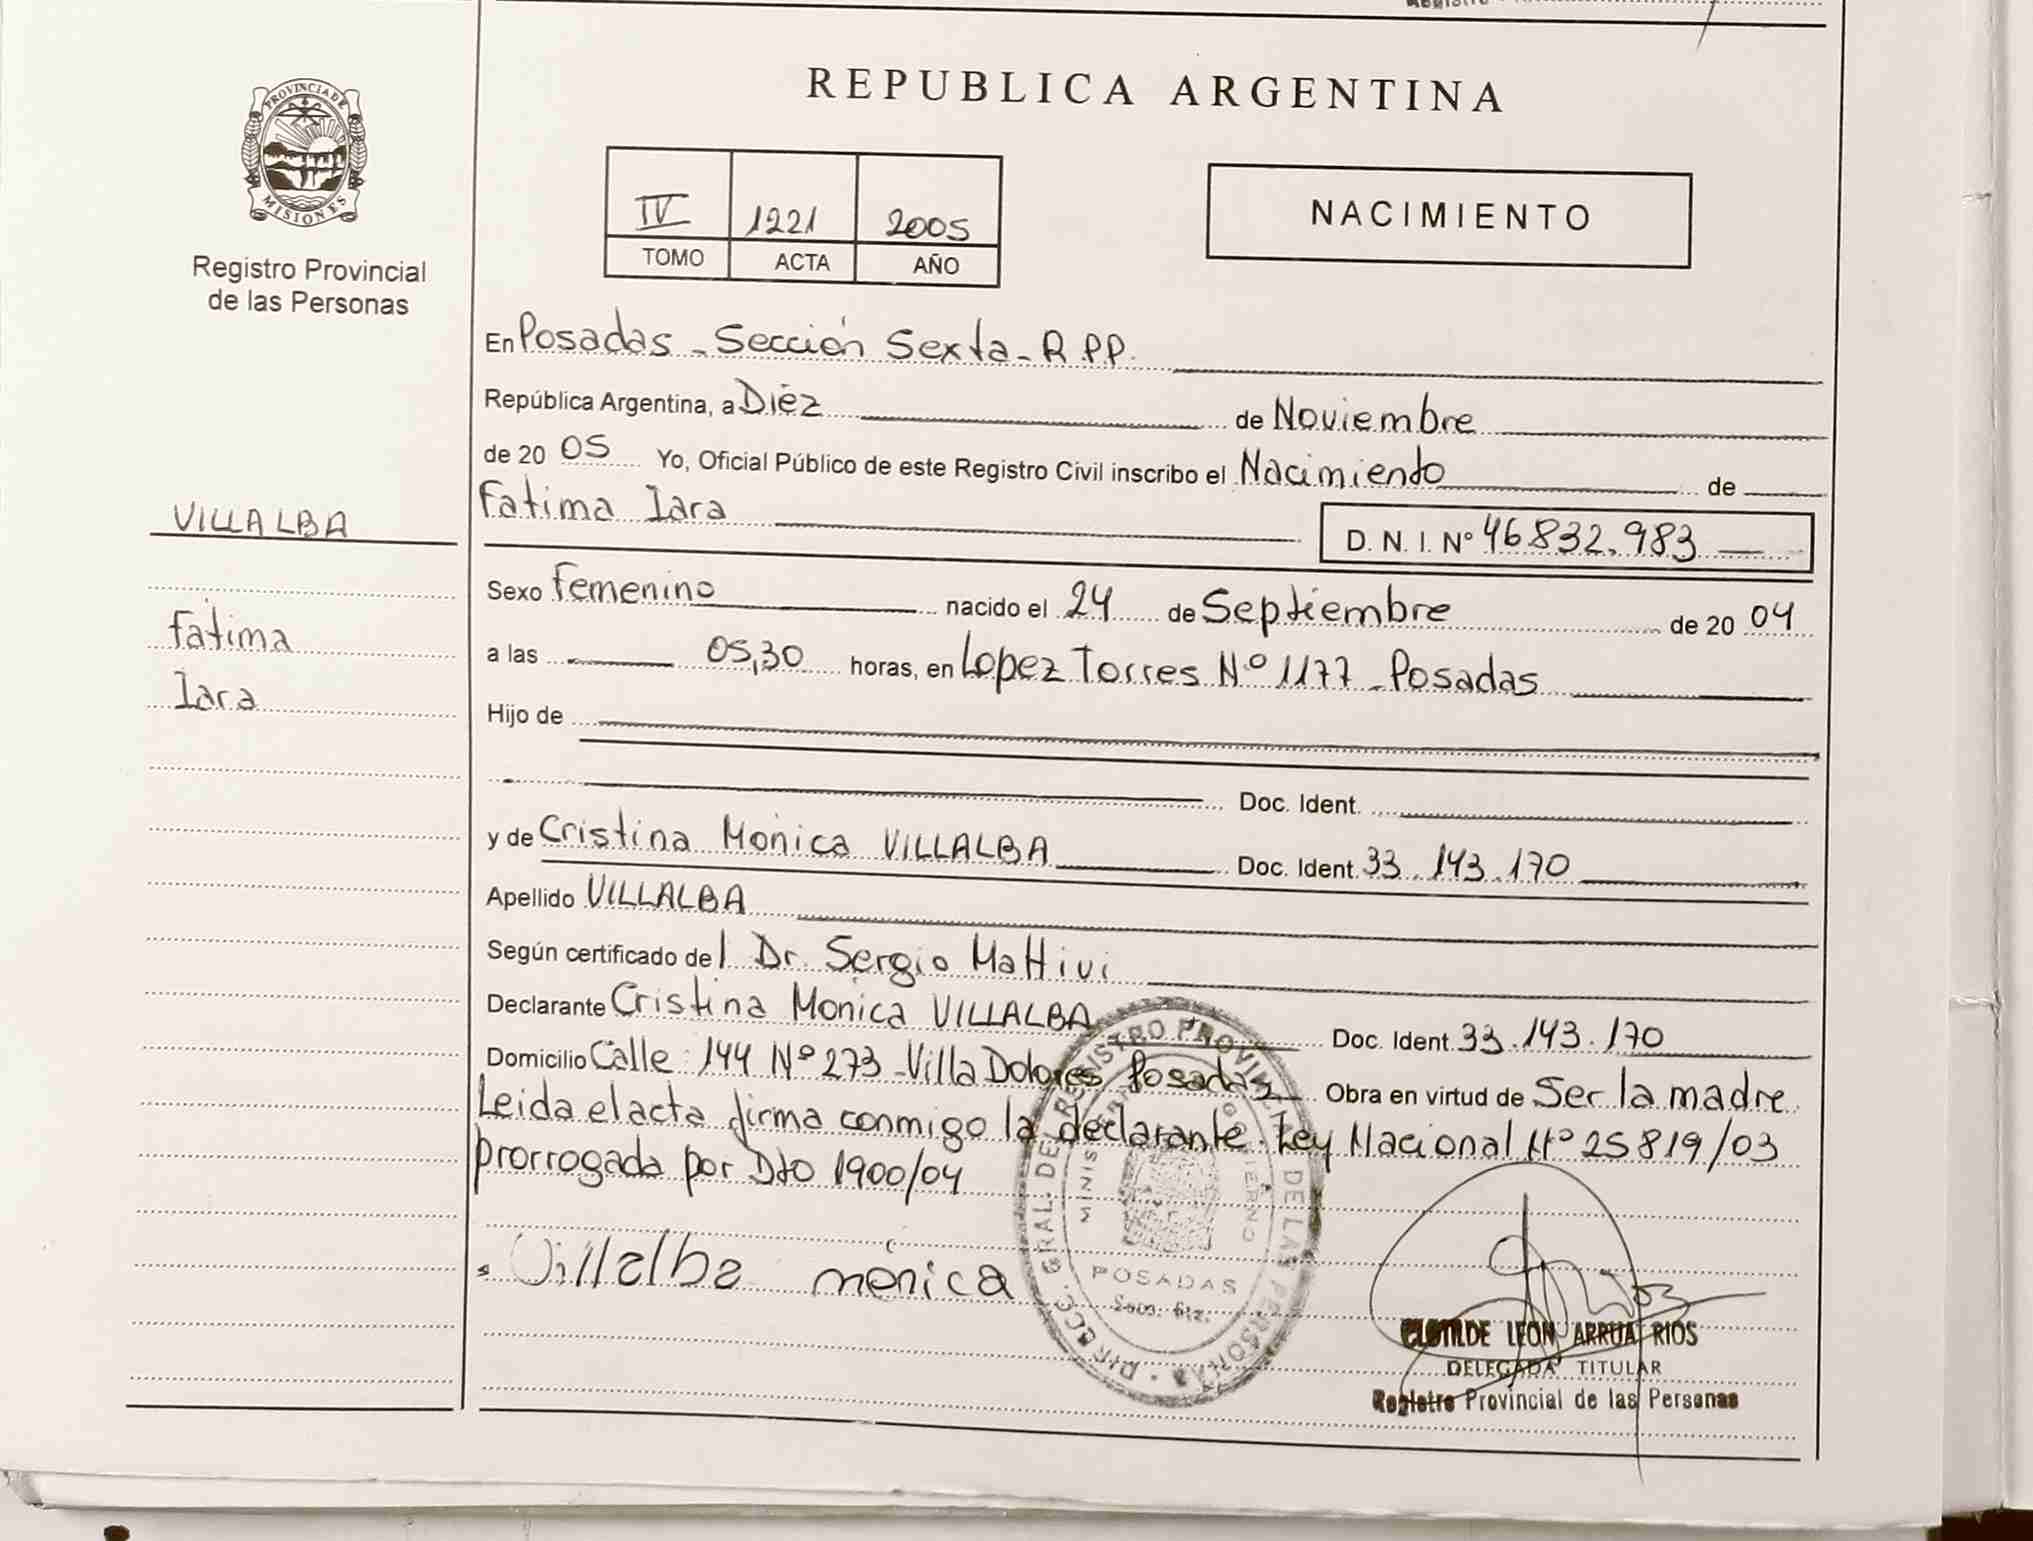 REPUBLICA ARGENTINA
PROVINCIA DE MISIONES
Registro Provincial
de las Personas
IV 1221 2005
TOMO ACTA AÑO
NACIMIENTO
En Posadas - Sección Sexta - R.P.P.
República Argentina, a Diéz de Noviembre
de 20 05 Yo, Oficial Público de este Registro Civil inscribo el Nacimiento de
Fatima Iara
D. N. I. Nº 46.832.983
VILLALBA
Fatima
Iara
Sexo Femenino nacido el 24 de Septiembre de 20 04
a las 05,30 horas, en Lopez Torres Nº 1177 - Posadas
Hijo de
Doc. Ident.
y de Cristina Monica VILLALBA Doc. Ident. 33.143.170
Apellido VILLALBA
Según certificado del Dr. Sergio Mattivi
Declarante Cristina Monica VILLALBA Doc. Ident. 33.143.170
Domicilio Calle: 144 Nº 273 - Villa Dolores Posadas Obra en virtud de Ser la madre
Leida el acta firma conmigo la declarante. Ley Nacional Nº 25819/03
prorrogada por Dto 1900/04
Villalba mónica
GRAL. DEL REGISTRO PROVINCIAL DE LAS PERSONAS
POSADAS
CLOTILDE LEON ARRUA RIOS
DELEGADA TITULAR
Registro Provincial de las Personas